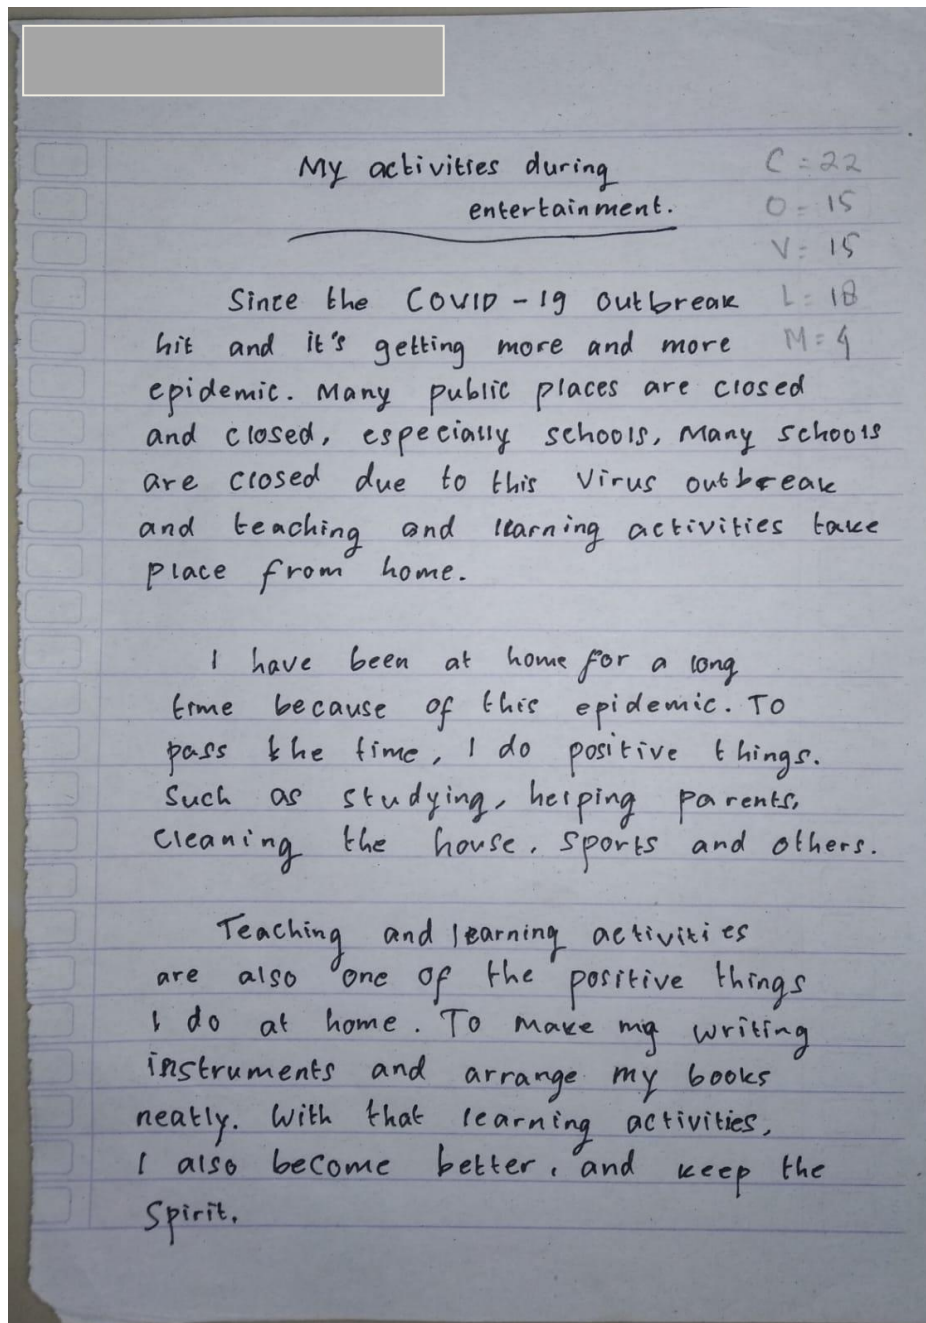 My activities during
entertainment.
C = 22
O = 15
V = 15
L = 18
M = 4
Since the COVID-19 outbreak
hit and it's getting more and more
epidemic. Many public places are closed
and closed, especially schools, Many schools
are closed due to this Virus outbreak
and teaching and learning activities take
place from home.
I have been at home for a long
time because of this epidemic. To
pass the time, I do positive things.
Such as studying, helping parents,
Cleaning the house, sports and others.
Teaching and learning activities
are also one of the positive things
I do at home. To make my writing
instruments and arrange my books
neatly. With that learning activities,
I also become better, and keep the
Spirit.